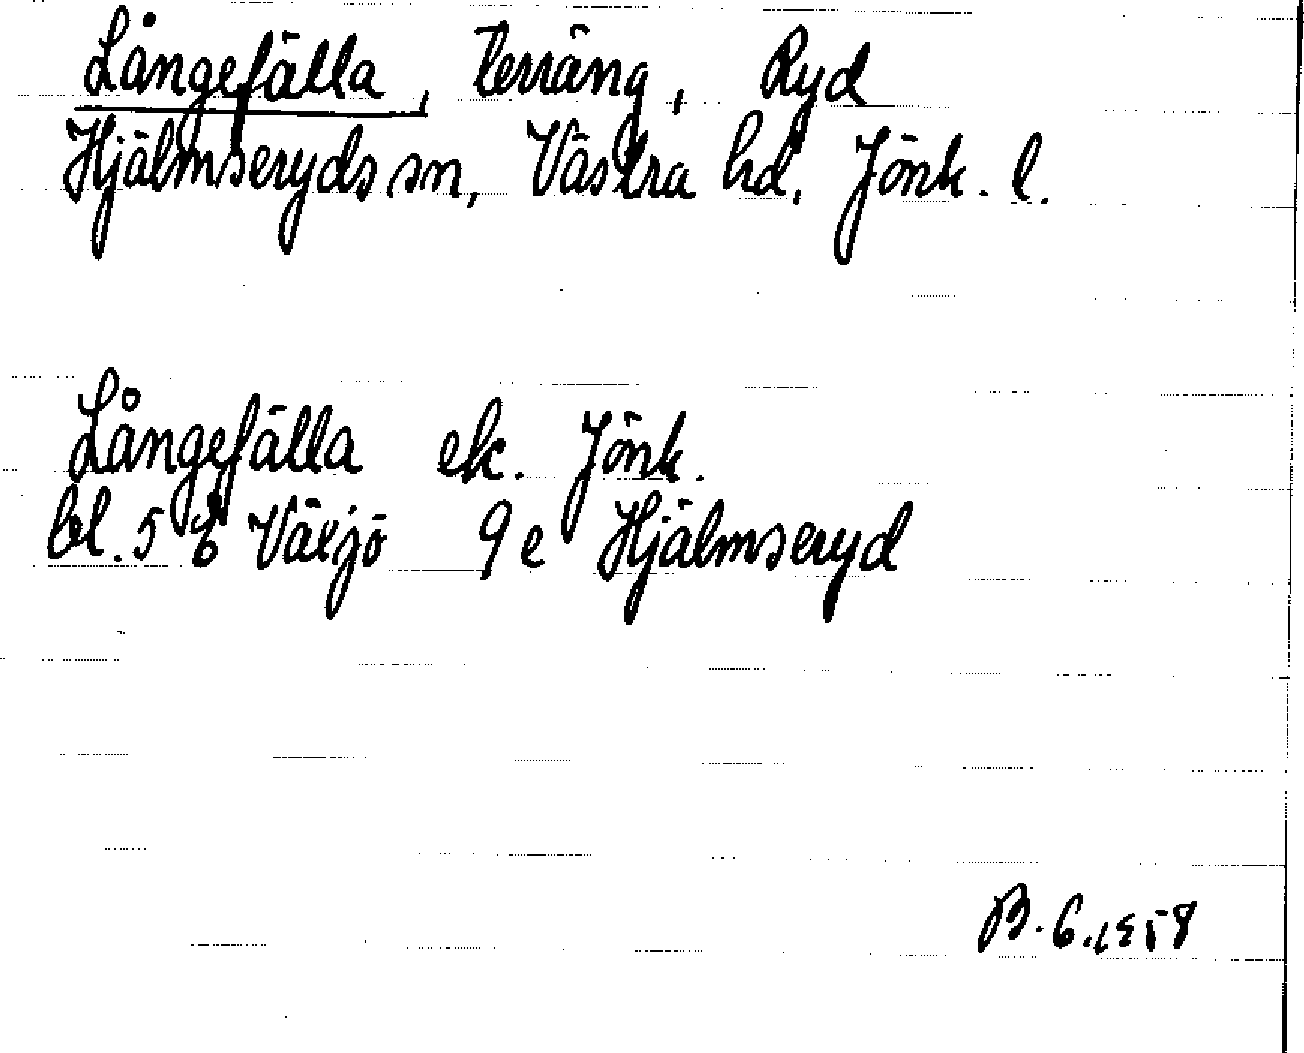 Långefälla, terräng, Ryd
Hjälmseryds sn, Västra hd, Jönk. l.
Långefälla ek. Jönk.
bl. 5 E Växjö 9 e Hjälmseryd
B. G. 1958